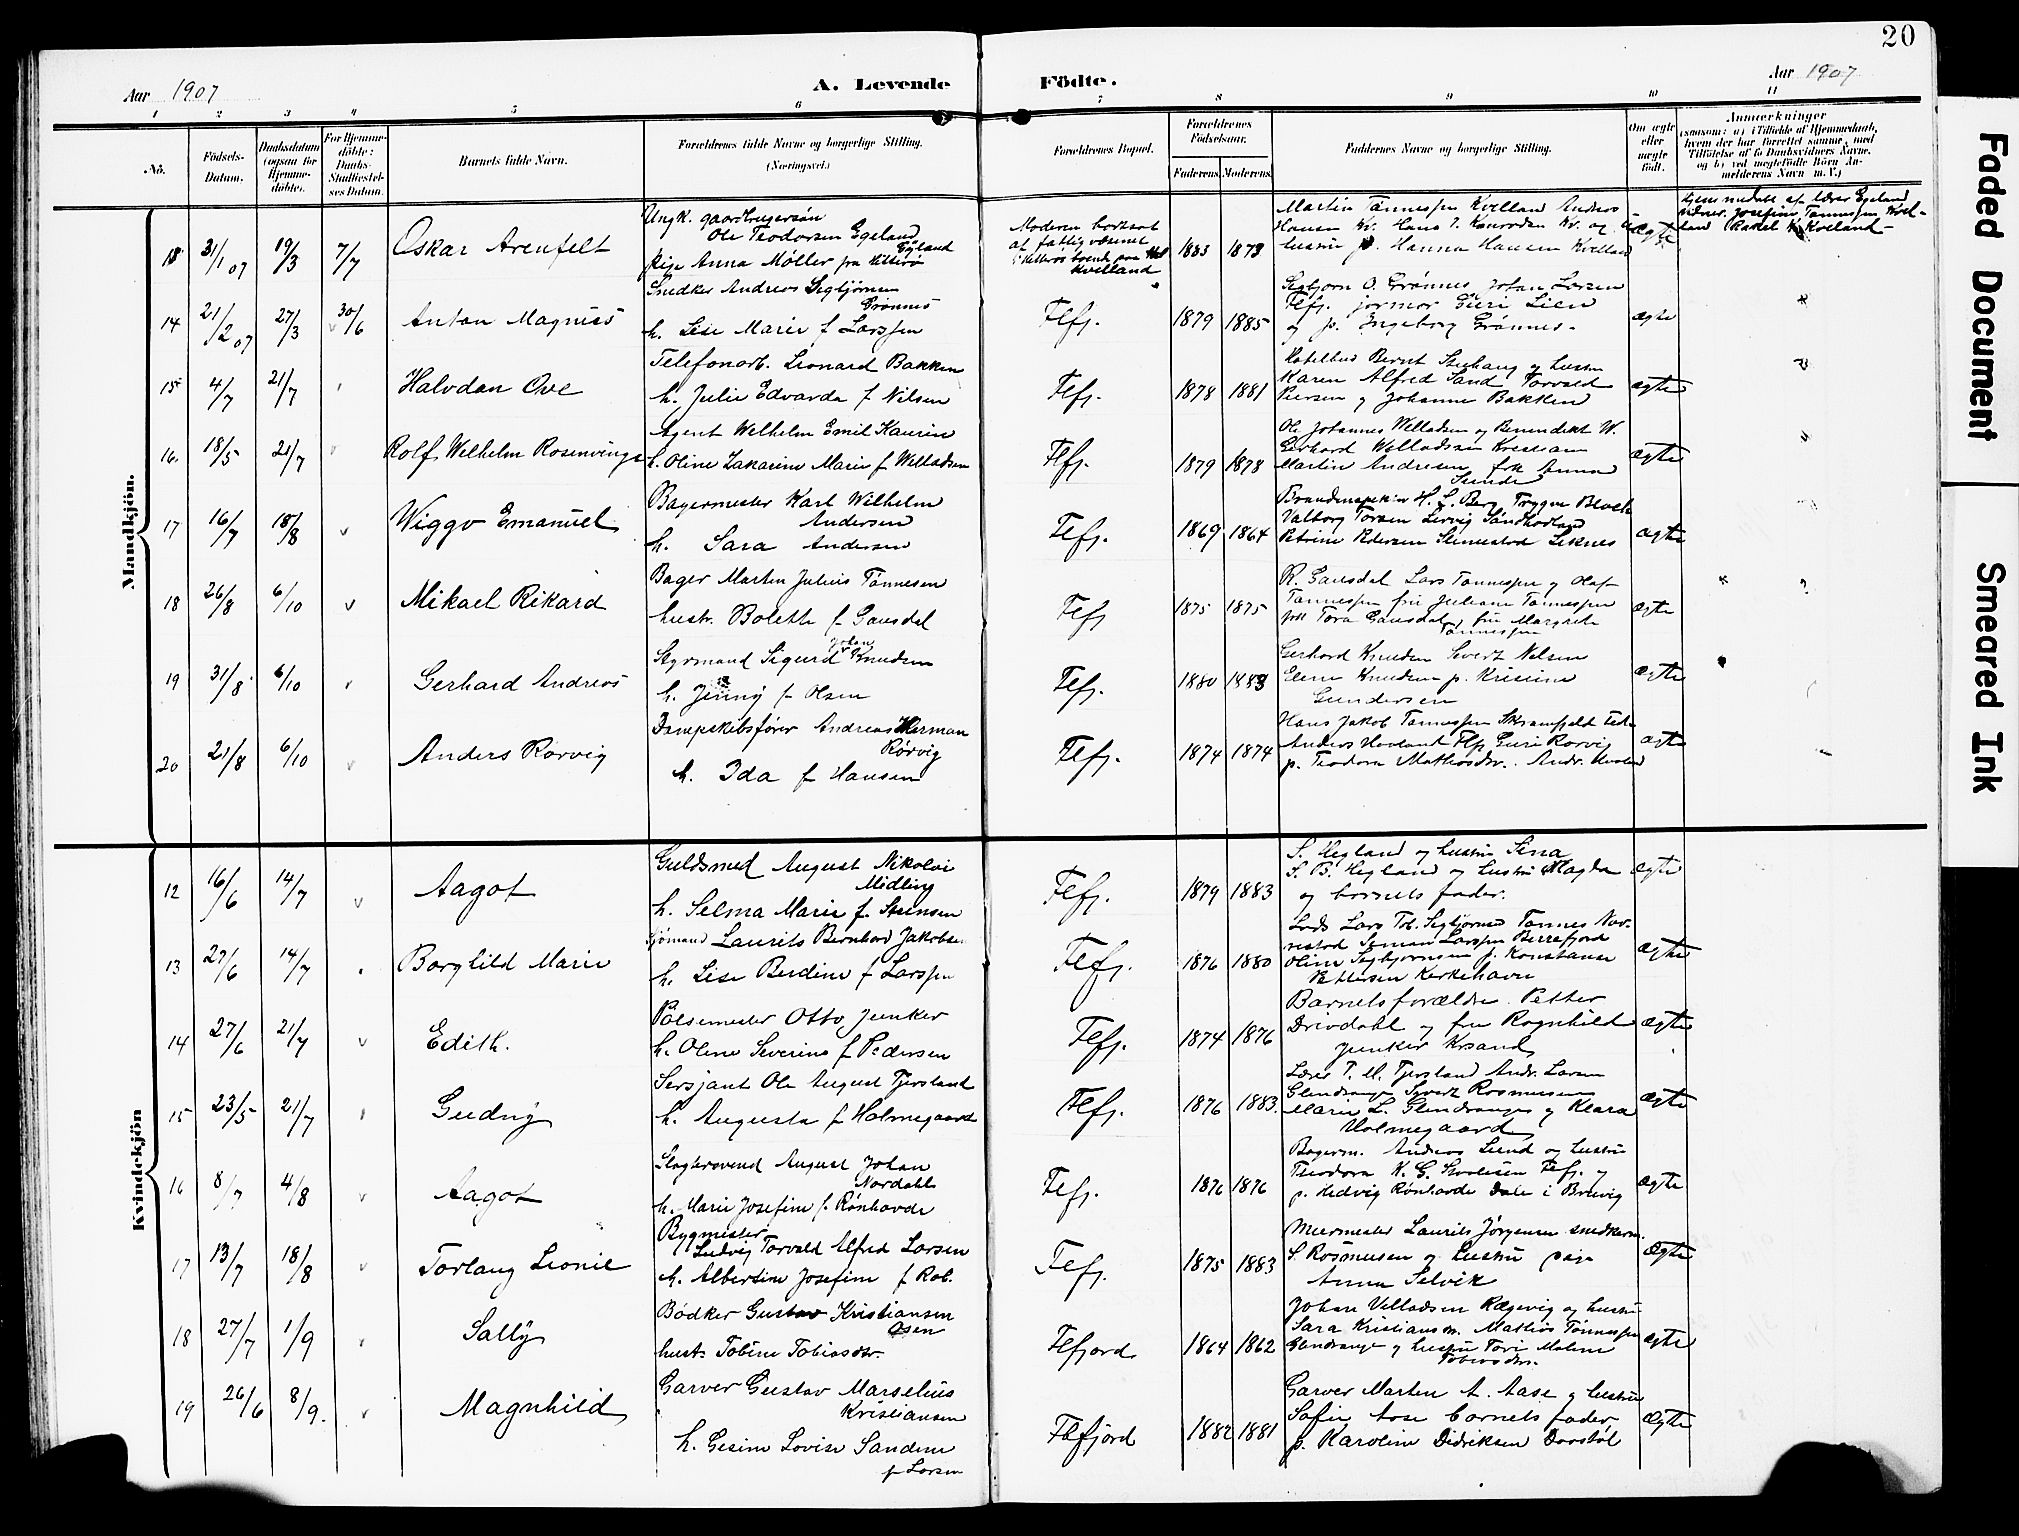 20
Aar 1907
A. Levende
Födte.
Aar 1907
1 2 3 4 5 6 7 8 9 10 11
No.
Födsels-Datum.
Daabsdatum (ogsaa for Hjemme-döbte).
For Hjemme-döbte: Daabs-Stadfæstel-ses Datum.
Barnets fulde Navn.
Forældrenes fulde Navne og borgerlige Stilling. (Næringsvei.)
Forældrenes Bopæl.
Forældrenes Födselsaar.
Faderens. Moderens.
Faddernes Navne og borgerlige Stilling.
Om ægte eller uægte födt.
Anmærkninger
(saasom: a) i Tilfælde af Hjemmedaab, hvem der har forrettet samme, med Tilföielse af to Daabsvidners Navne, og b) ved uægtefödte Börn An-melderens Navn m. V.)
Mandkjön.
18 31/1 07 19/3 7/7 Oskar Arenfelt
Ungk. gaardbrugersøn
Ole Teodorsen Egeland
Pige Anna Møller fra Hitterø
Moderen bortsat
af fattigvæsenet
Kvelland
1883 1873
Martin Tønnessen Kvelland Andreas
Hansen Kv. Hans T. Konradsen Kv. og
hustru p. Hanna Hansen Kvelland
uægte
Hjemmedøbt af lærer Egeland
14 21/2 07 27/3 30/6 Anton Magnus
Snedker Andreas Segbjørnsen
Grønnes
h. Lise Marie f Larssen
Flefj. 1879 1885
Segbjørn O. Grønnes, Johan Larsen
Flefj. jormor Guri Lien
og p. Ingeborg Grønnes.
ægte
15 4/7 21/7 Halvdan Ove
Telefonarb. Leonard Bakken
h. Julie Edvarda f Nilsen
Flefj. 1878 1881
Karen Alfred Sand Torvald
Piersen og Johanne Bakken
ægte
16. 18/5 21/7 Rolf Welhelm Rosenvinge
Agent Welhelm Emil Kaurin
h. Oline Zakarine Marie f Welladsen
Flefj. 1879 1878
Ole Johannes Welladsen og Benendikt W.
Gerhard Welladsen Kristiane
Martin Andresen frk Anna
Sunde
ægte
17 16/7 18/8 Wiggo Emanuel
Bagermester Karl Wilhelm
Andersen
h. Sara Andersen
Flefj. 1869 1864
H. L. Berg Trygve Bloch
Petrine Pedersen
ægte
18 26/8 6/10 Mikael Rikard
Bager Marten Julius Tønnesen
hustr. Bolette f Gausdal
Flefj 1875 1875
R. Gausdal Lars Tønnessen og Olaf
Tønnessen fru Juliane Tønnessen
frk Tora Gausdal, fru Margrete
Tønnessen
ægte
19 31/8 6/10 Gerhard Andreas
Styrmand Sigurd Johan Knudsen
h. Jenny f Olsen
Flefj. 1880 1883
Gerhard Knudsen Severt Nelsen
Elene Knudsen p. Kristine
Gundersen
ægte
20 21/8 6/10 Anders Rørvig
Dampskibsfører Andreas Herman
Rørvig
h. Ida f Hansen
Flefj. 1874 1874
Hans Jakob Tønnessen
Anders Hovland Flfj Guri Rørvig
p. Teodora Mathiasdtr. Andr. Hovland
ægte
Kvindekjön
12 16/6 14/7 Aagot
Guldsmed August Nikolai
Midling
h. Selma Marie f. Stensen
Flefj. 1879 1883
S. Hegland og hustru Sina
S. B. Hegland og hustru Magda
og barnets fader.
ægte
13 27/6 14/7 Borghild Marie
Sjømand Laurits Bernhard Jakobsen
h. Lise Berdine f Larssen
Flefj. 1876 1880
Lods Lars Tob. Segbjørnsen Tønnes Nor-
restad Seman Larssen Berrefjord
Oline Segbjørnsen p. Konstanse
Pettersen Kerkehavn
ægte
14 27/6 21/7 Edith.
Pølsemester Otto Junker
h. Oline Severine f Pedersen
Flefj. 1874 1876
Barnets forældre. Petter
Drivdahl og fru Ragnhild
Junker Krsand
ægte
15 23/5 21/7 Gudny
Sersjant Ole August Tjersland
h. Augusta f Holmegaard
Flefj. 1876 1883.
Lærer T. M. Tjersland Andr. Larsen
Glendrange Syvert Rasmussen
Marie L. Glendrange og Klara
Holmegaard
ægte
16 8/7 4/8 Aagot
Slagtersvend August Johan
Nordahl
h. Marie Josefine f. Rønhovde
Flefj. 1876 1876
Bagerm. Andreas Lund og hustru
Teodora K. G. Flefj. og
p. Hedvig Rønhovde Dale i Brevig
ægte
17 13/7 18/8 Torlaug Leonie
Bygmester
Ludvig Torvald Alfred Larsen
h. Albertine Josefine f Rob.
Flefj. 1875 1883
Murmester Laurits Jørgensen snedkerm.
S. Rasmussen og hustru pige
Anna Selvik
Ægte
18 27/7 1/9 Sally
Bødker Gustav Kristiansen
Osen
hust. Tobine Tobiasdtr.
Flefjord 1864 1862
Johan Velladsen Rægevig og hustru
Sara Kristiansen. Mathias Tønnessen
Glendrange og hustru Tora Malene
Tobiasdtr.
ægte
19 26/6 8/9. Magnhild
Garver Gustav Marselius
Kristiansen
h. Gesine Lovise Sandene
f Larsen
Flefjord 1882 1881
Garver Marten A. Aase og hustru
Sofie Aase barnets fader
p. Karoline Didriksen Dorstøl
Ægte
Faded Document
Smeared Ink